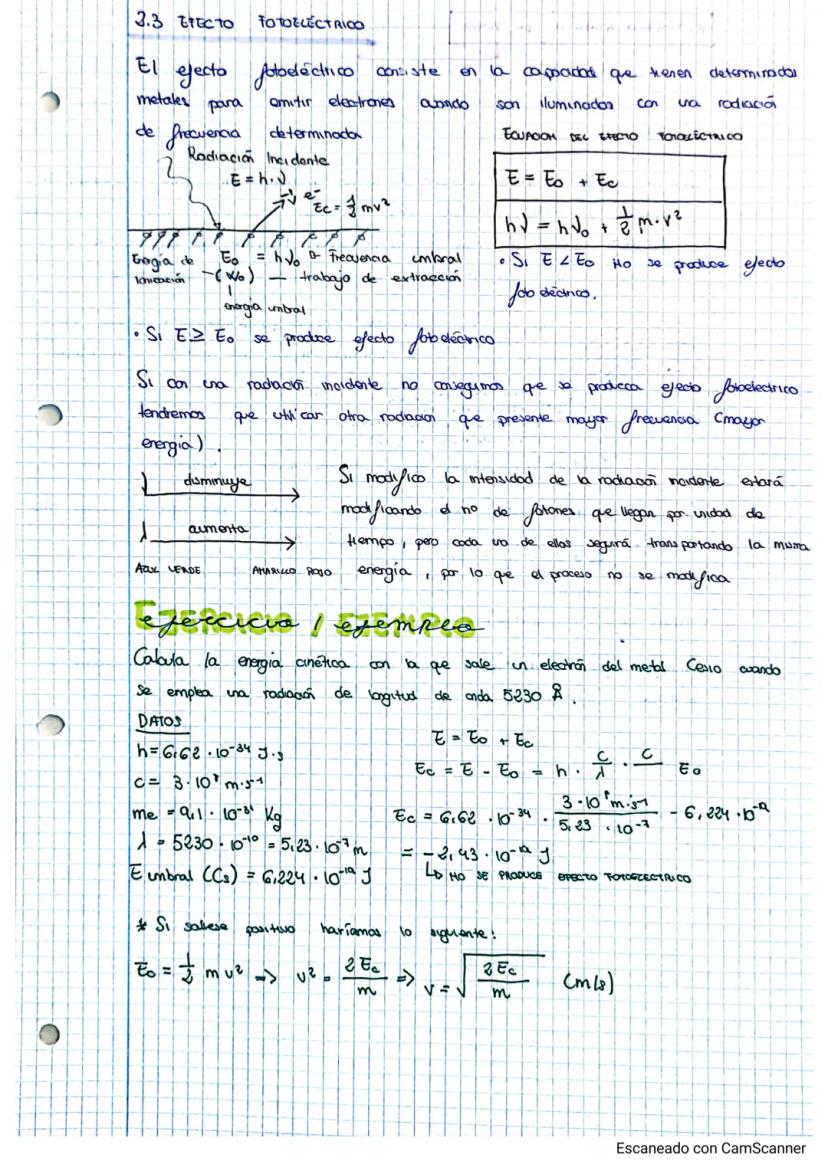 3.3 EFECTO FOTOELÉCTRICO
El efecto fotoeléctrico consiste en la capacidad que tienen determinados
metales para emitir electrones cuando son iluminados con una radiación
de frecuencia determinada
ECUACIÓN DEL EFECTO FOTOELÉCTRICO
Radiación Incidente
E = h·ν
e⁻
Ec = 1/2 mv²
E = E₀ + Ec
hν = hν₀ + 1/2 m·v²
Energía de ionización
E₀ = hν₀ → Frecuencia umbral
(W₀) — trabajo de extracción
energía umbral
• Si E < E₀ No se produce efecto
fotoeléctrico.
• Si E ≥ E₀ se produce efecto fotoeléctrico
Si con una radiación incidente no conseguimos que se produzca efecto fotoelectrico
tendremos que utilizar otra radiacion que presente mayor frecuencia (mayor
energía).
disminuye
aumenta
AZUL VERDE AMARILLO ROJO
Si modifico la intensidad de la radiación incidente estará
modificando el no de fotones que llegan por unidad de
tiempo, pero cada uno de ellos seguirá transportando la misma
energía, por lo que el proceso no se modifica
EJERCICIO / EJEMPLO
Calcula la energía cinética con la que sale un electrón del metal Cesio cuando
se emplea una radiación de longitud de onda 5230 Å.
DATOS
h = 6,62 · 10⁻³⁴ J·s
c = 3 · 10⁸ m·s⁻¹
me = 9,1 · 10⁻³¹ Kg
λ = 5230 · 10⁻¹⁰ = 5,23 · 10⁻⁷ m
E umbral (Cs) = 6,224 · 10⁻¹⁹ J
E = E₀ + Ec
Ec = E - E₀ = h · c/λ · c E₀
Ec = 6,62 · 10⁻³⁴ · 3·10⁸ m·s⁻¹ / 5,23 · 10⁻⁷ - 6,224 · 10⁻¹⁹
= -2,43 · 10⁻¹⁹ J
↳ NO SE PRODUCE EFECTO FOTOELECTRICO
* Si saliese positivo haríamos lo siguiente:
E₀ = 1/2 m v² => v² = 2Ec/m => v = √(2Ec/m) (m/s)
Escaneado con CamScanner